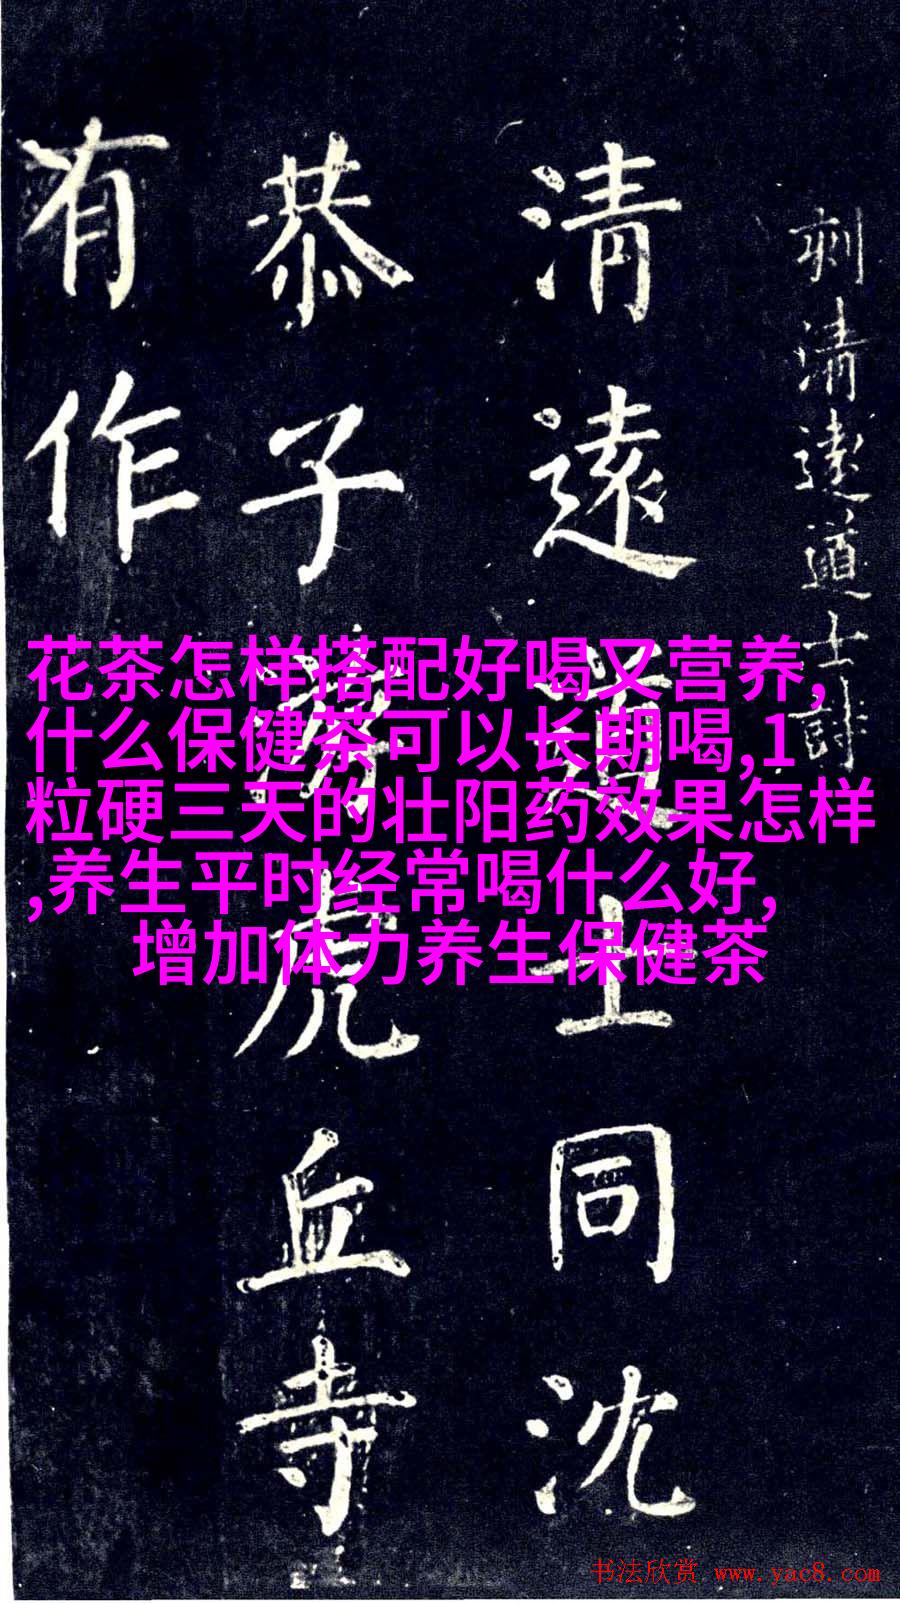 刾清遠道士詩
清遠道士同沈
恭子遊虎丘寺
有作
花茶怎样搭配好喝又营养,
什么保健茶可以长期喝,1
粒硬三天的壮阳药效果怎样
,养生平时经常喝什么好,
增加体力养生保健茶
书法欣赏 www.yac8.com